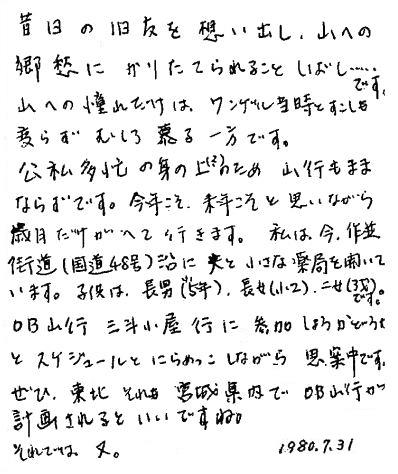 昔日の旧友を想い出し、山への
郷愁にかりたてられることしばし……です。
山への憧れだけは、ワンゲル当時とすこしも
変らずむしろ募る一方です。
公私多忙の身の上(?)のため山行もまま
ならずです。今年こそ、来年こそと思いながら
歳月だけがへて行きます。私は今、作並
街道(国道48号)沿に夫と小さな薬局を開いて
います。子供は、長男(小5年)、長女(小2)、二女(3歳)です。
OB山行 三斗小屋行に参加しようかどうか
とスケジュールとにらめっこしながら思案中です。
ぜひ、東北それも宮城県内でOB山行が
計画されるといいですね。
それでは又。
1980.7.31